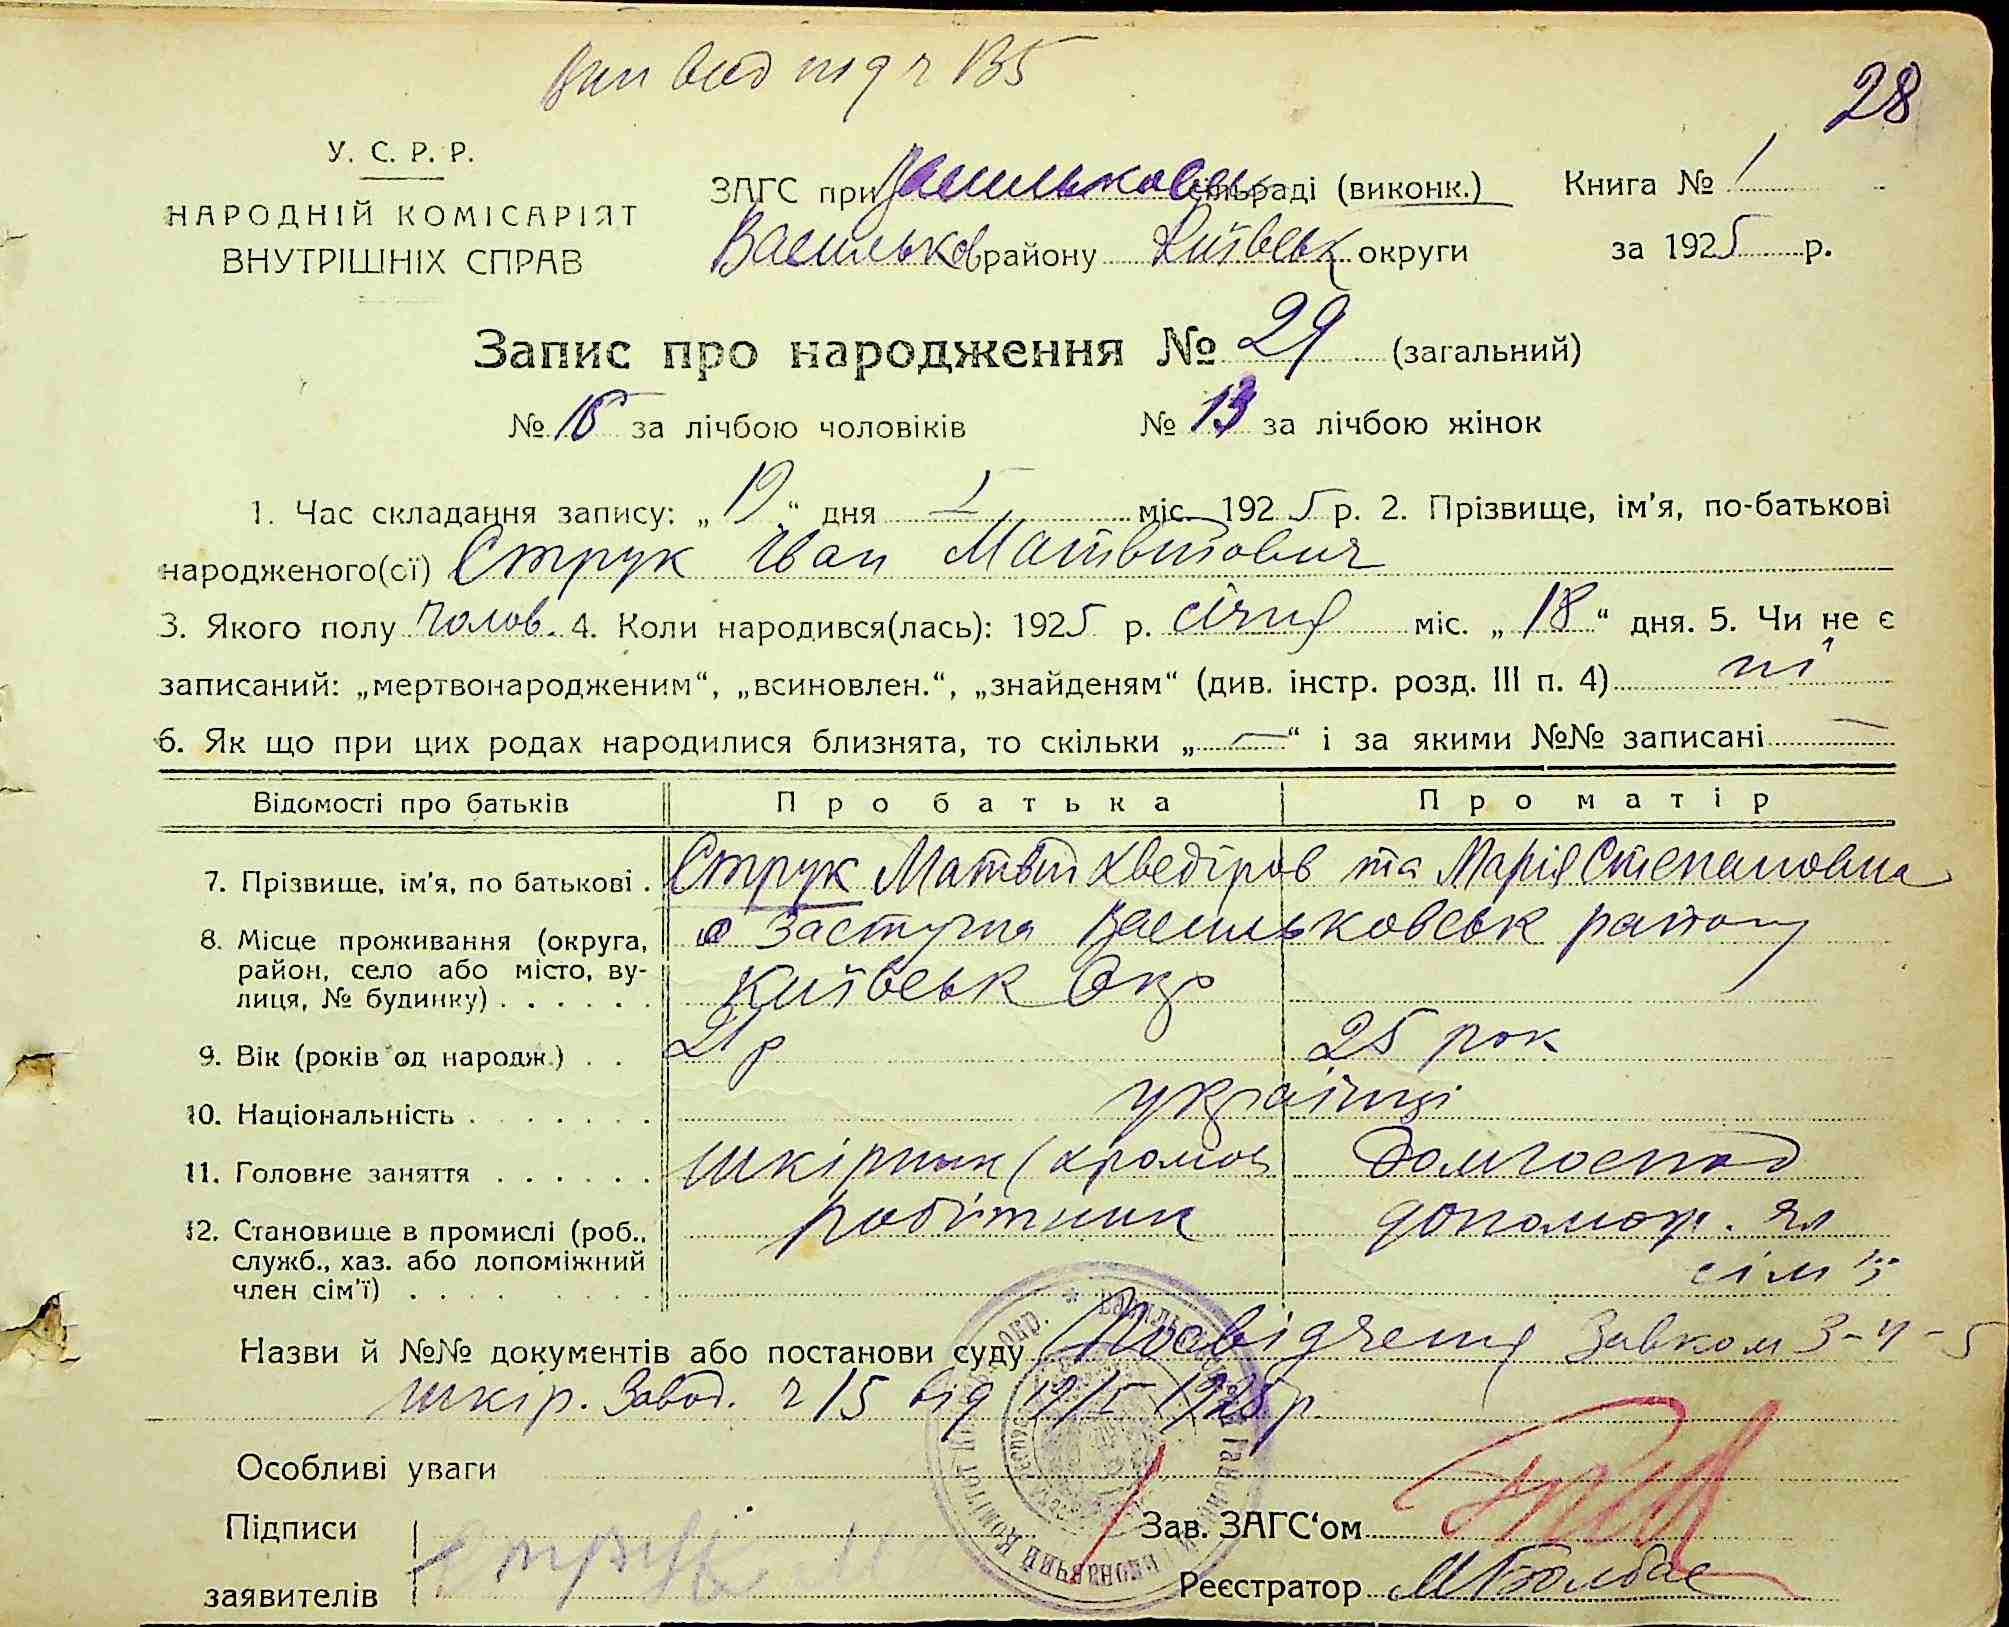 28
У. С. Р. Р.
НАРОДНІЙ КОМІСАРІЯТ
ВНУТРІШНІХ СПРАВ
ЗАГС при Васильковськ сільраді (виконк.) Книга № 1
Васильков району Київськ округи за 1925 р.
Запис про народження № 29 (загальний)
№ за лічбою чоловіків № 13 за лічбою жінок
1. Час складання запису: „19“ дня І міс. 1925 р. 2. Прізвище, ім'я, по-батькові
народженого(ої) Струк Іван Матвійович
3. Якого полу Чолов. 4. Коли народився(лась): 1925 р. січня міс. „18“ дня. 5. Чи не є
записаний: „мертвонародженим“, „всиновлен.“, „знайденям“ (див. інстр. розд. III п. 4) ні
6. Як що при цих родах народилися близнята, то скільки „—“ і за якими №№ записані —
Відомості про батьків Про батька Про матір
7. Прізвище, ім'я, по батькові . Струк Матвій Хведіров та Марія Степановна
8. Місце проживання (округа, Застугна Васильковськ району
район, село або місто, ву-
лиця, № будинку) . . . . . . Київськ Окр
9. Вік (років од народж.) . . р 25 рок
10. Національність . . . . . . . українці
11. Головне заняття . . . . . . шкірник домгоспод
12. Становище в промислі (роб., робітник допомож. чл
служб., хаз. або допоміжний сім'ї
член сім'ї) . . . . . . . . .
Назви й №№ документів або постанови суду Посвідчення Завком 3-4-5
шкір. Завод. ч 15 від 19/І 1925 р
Особливі уваги
Підписи Зав. ЗАГС'ом
заявителів Струк М Реєстратор